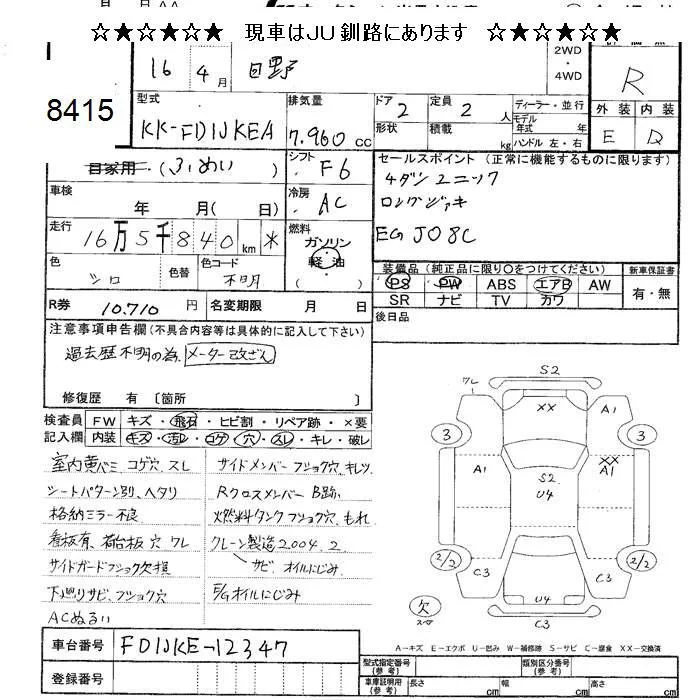 ☆★☆★☆★ 現車はJU釧路にあります ☆★☆★☆★
16 4月 日野
2WD
・
4WD
R
8415
型式
KK-FD1JKEA
排気量
7.960 cc
ドア 2
定員 2 人
形状
積載 kg
ディーラー・並行
モデル
年式 年
ハンドル 左・右
外装 内装
E D
自家用・(ふめい)
シフト F6
セールスポイント (正常に機能するものに限ります)
4ダン ユニック
ロングジャッキ
EG J08C
車検
年 月( 日)
冷房 AC
走行
16万5千840km *
燃料
ガソリン
軽油
( )
色 シロ
色替
色コード 不明
装備品 (純正品に限り○をつけてください)
新車保証書
PS PW ABS エアB AW
有・無
SR ナビ TV カワ
R券 10.710円
名変期限 月 日
後日品
注意事項申告欄 (不具合内容等は具体的に記入して下さい)
過去歴不明の為、メーター改ざん
修復歴 有 〔箇所 〕
検査員 FW キズ・飛石・ヒビ割・リペア跡・×要
記入欄 内装 キズ・汚レ・コゲ・穴・スレ・キレ・破レ
室内黄バミ コゲ穴、スレ
シートパターン別、ヘタリ
格納ミラー不良
看板有、荷台板 穴 ワレ
サイドガードフショク欠損
下廻りサビ、フショク穴
ACぬるい
サイドメンバー フショク穴、キレツ
Rクロスメンバー B跡
燃料タンク フショク穴、もれ
クレーン製造2004.2
サビ、オイルにじみ
E/Gオイルにじみ
ワレ
S2
XX
A1
3
3
A1
S2
U4
XX
A1
2/2
2/2
C3
C3
欠
U4
C3
車台番号 FD1JKE-12347
A−キズ E−エクボ U−凹み W−補修跡 S−サビ C−腐食 XX−交換済
登録番号
型式指定番号
(参考)
類別区分番号
(参考)
車庫証明用
(参考)
長さ cm
幅 cm
高さ cm